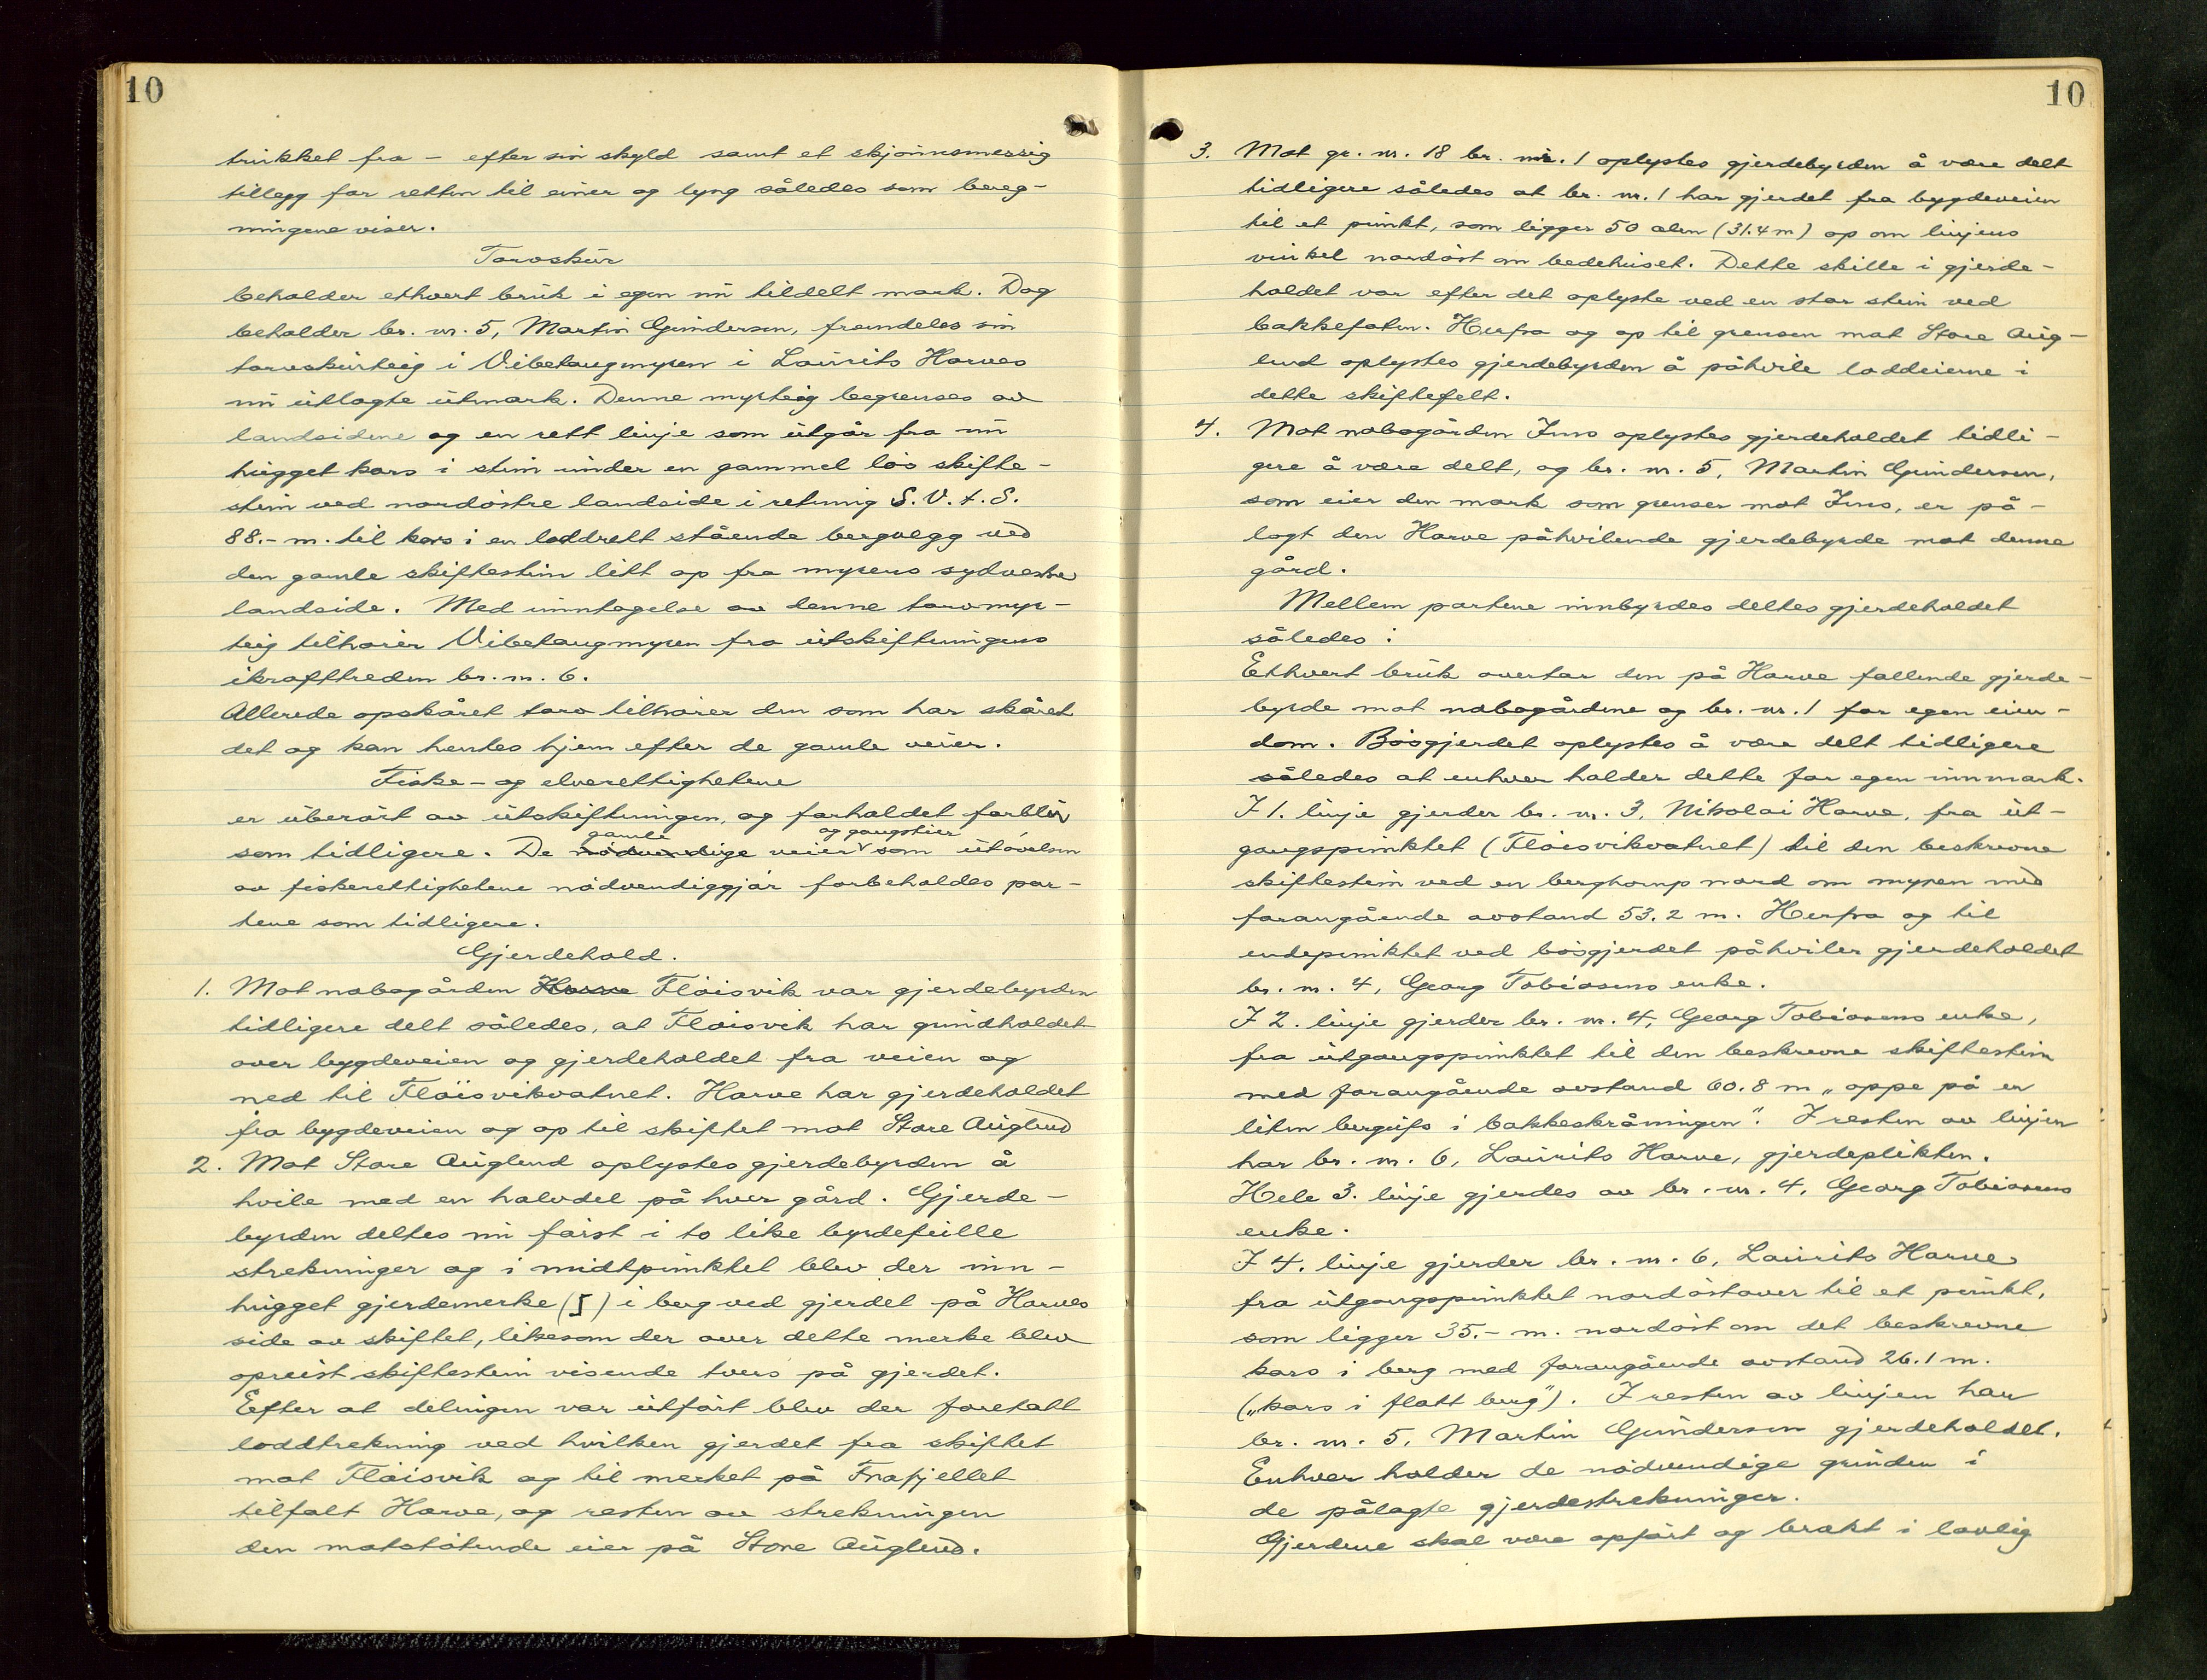 10
trukket fra – efter sin skyld samt et skjønnsmessig
tillegg for retten til einer og lyng således som bereg-
ningene viser.
Torvskur
beholder ethvert bruk i egen nu tildelt mark. Dog
beholder br. nr. 5, Martin Gundersen, fremdeles sin
torvskurteig i Vibetaugmyren i Laurits Harves
nu utlagte utmark. Denne myrteig begrenses av
landsidene og en rett linje som utgår fra nu
hugget kors i stein under en gammel løs skifte-
stein ved nordøstre landside i retning S. V. t. S.
88.- m. til kors i en loddrett stående bergvegg ved
den gamle skiftestein litt op fra myrens sydvestre
landside. Med unntagelse av denne torvmyr-
teig tilhører Vibetaugmyren fra utskiftningens
ikrafttreden br. nr. 6.
Allerede opskåret torv tilhører den som har skåret
det og kan hentes hjem efter de gamle veier.
Fiske- og elverettighetene
er uberørt av utskiftningen, og forholdet forblir
gamle og gangstier
som tidligere. De nødvendige veier som utøvelsen
av fiskerettighetene nødvendiggjør forbeholdes par-
tene som tidligere.
Gjerdehold.
1. Mot nabogården Harve Fløisvik var gjerdebyrden
tidligere delt således, at Fløisvik har grindholdet
over bygdeveien og gjerdeholdet fra veien og
ned til Fløisvikvatnet. Harve har gjerdeholdet
fra bygdeveien og op til skiftet mot Store Auglend
2. Mot Store Auglend oplystes gjerdebyrden å
hvile med en halvdel på hver gård. Gjerde-
byrden deltes nu først i to like byrdefulle
strekninger og i midtpunktet blev der inn-
hugget gjerdemerke (I) i berg ved gjerdet på Harves
side av skiftet, likesom der over dette merke blev
opreist skiftestein visende tvers på gjerdet.
Efter at delingen var utført blev der foretatt
loddtrekning ved hvilken gjerdet fra skiftet
mot Fløisvik og til merket på Fnafjellet
tilfalt Harve, og resten av strekningen
den motstøtende eier på Store Auglend.
10
3. Mot gr. nr. 18 br. nr. 1 oplystes gjerdebyrden å være delt
tidligere således at br. nr. 1 har gjerdet fra bygdeveien
til et punkt, som ligger 50 alen (31.4 m) op om linjens
vinkel nordøst om bedehuset. Dette skille i gjerde-
holdet var efter det oplyste ved en stor stein ved
bakkefoten. Herfra og op til grensen mot Store Aug-
lend oplystes gjerdebyrden å påhvile loddeierne i
dette skiftefelt.
4. Mot nabogården Fuss oplystes gjerdeholdet tidli-
gere å være delt, og br. nr. 5, Martin Gundersen,
som eier den mark som grenser mot Fuss, er på-
lagt den Harve påhvilende gjerdebyrde mot denne
gård.
Mellem partene innbyrdes deltes gjerdeholdet
således:
Ethvert bruk overtar den på Harve fallende gjerde-
byrde mot nabogårdene og br. nr. 1 for egen eien-
dom. Bøsgjerdet oplystes å være delt tidligere
således at enhver holder dette for egen innmark.
I 1. linje gjerder br. nr. 3, Nikolai Harve, fra ut-
gangspunktet (Fløisvikvatnet) til den beskrevne
skiftestein ved en berghomp nord om myren med
forangående avstand 53.2 m. Herfra og til
endepunktet ved bøsgjerdet påhviler gjerdeholdet
br. nr. 4, Georg Tobiasens enke.
I 2. linje gjerder br. nr. 4, Georg Tobiasens enke,
fra utgangspunktet til den beskrevne skiftestein
med forangående avstand 60.8 m „oppe på en
liten bergufs i bakkeskråningen". I resten av linjen
har br. nr. 6, Laurits Harve, gjerdeplikten.
Hele 3. linje gjerdes av br. nr. 4, Georg Tobiasens
enke.
I 4. linje gjerder br. nr. 6, Laurits Harve
fra utgangspunktet nordøstover til et punkt,
som ligger 35.- m. nordøst om det beskrevne
kors i berg med forangående avstand 26.1 m.
(„kors i flatt berg"). I resten av linjen har
br. nr. 5, Martin Gundersen gjerdeholdet.
Enhver holder de nødvendige grinder i
de pålagte gjerdestrekninger.
Gjerdene skal være opført og brakt i lovlig